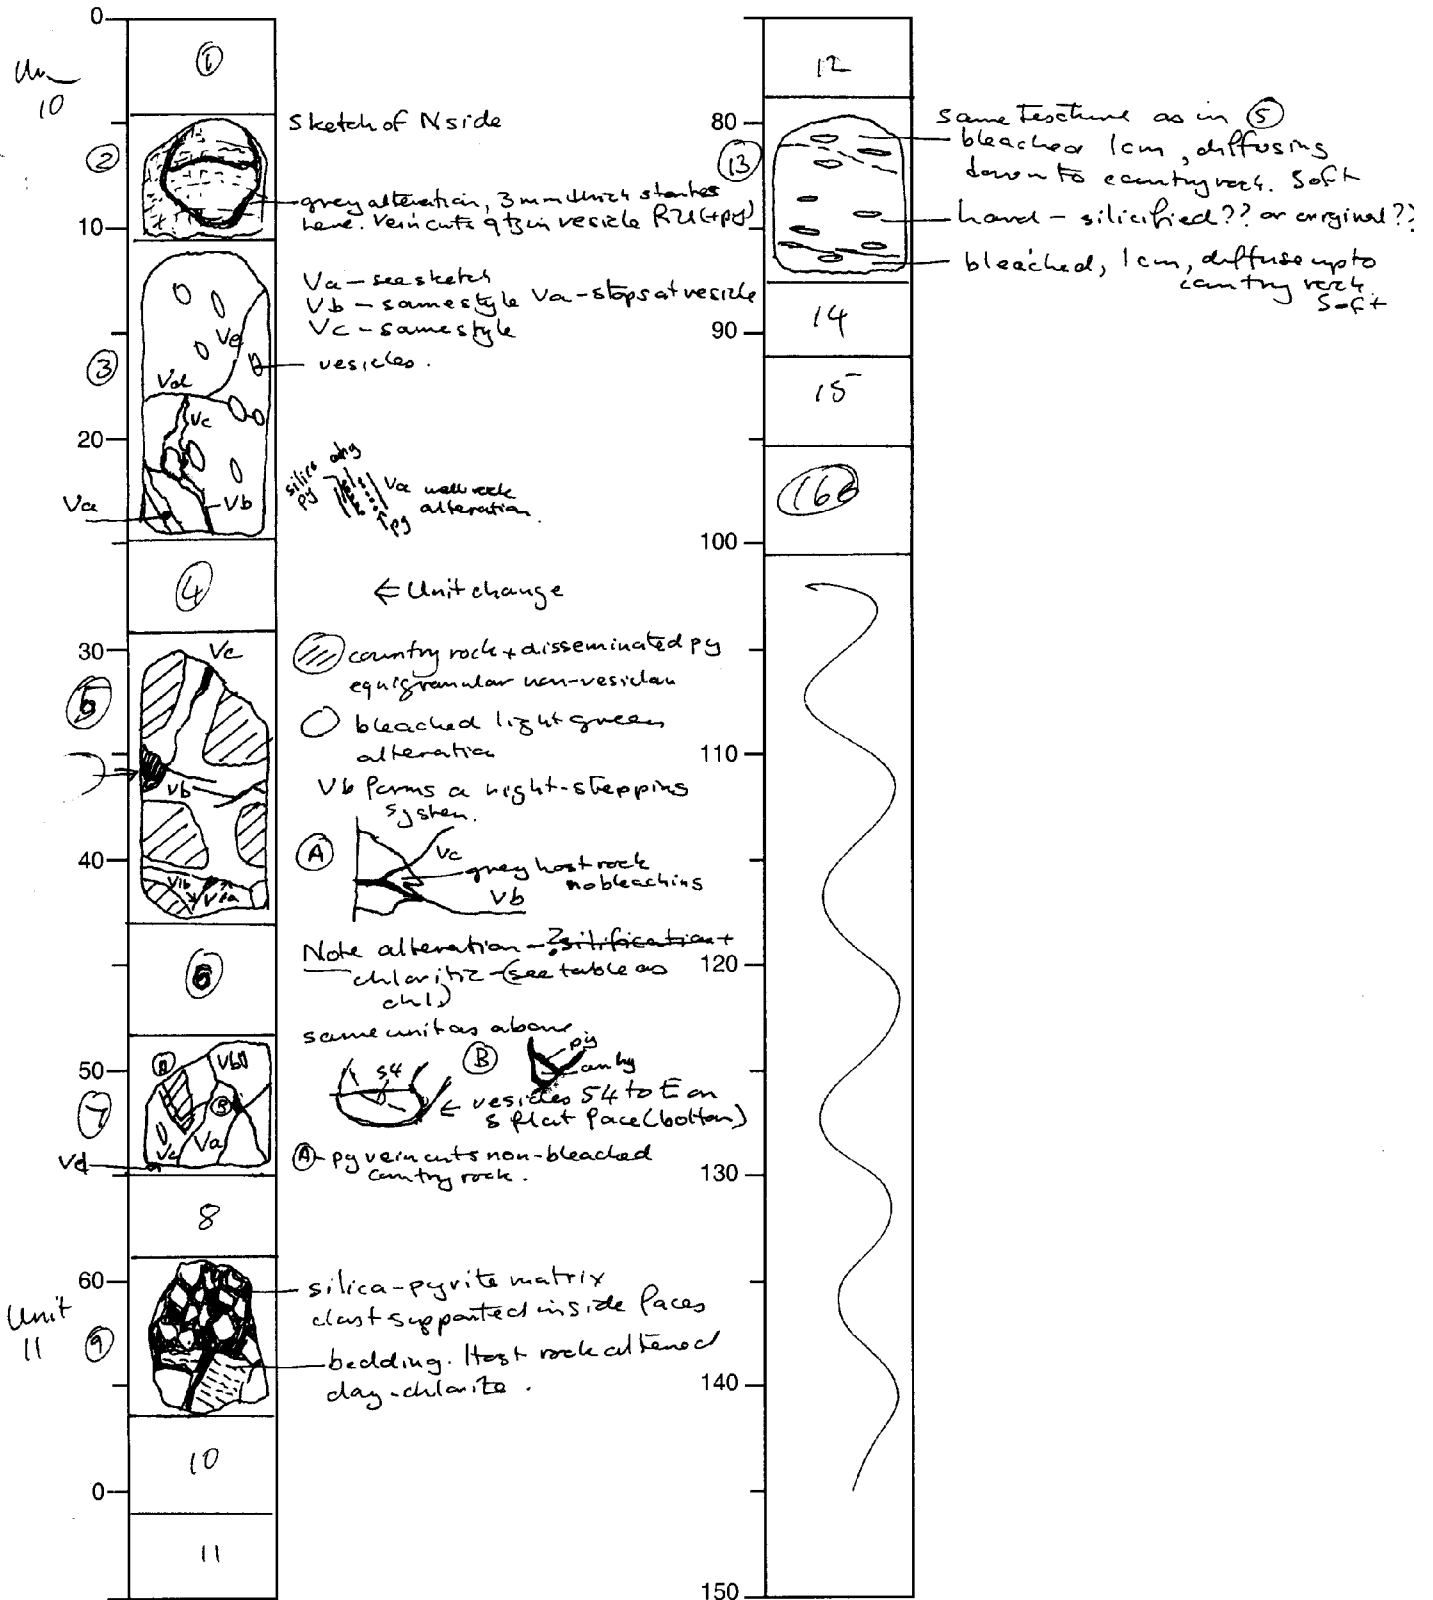 0
①
10
sketch of N side
②
grey alteration, 3mm thick starts
here. Vein cuts qtz in vesicle fill (+py)
10
Va - see sketch
Vb - same style Va - stops at vesicle
Vc - same style
Ve
③
vesicles.
Vd
Vc
20
silica
anhy
py
Va wall rock
alteration
py
Va
Vb
④
← Unit change
30
Vc
country rock + disseminated py
equigranular non-vesicular
5
bleached light green
alteration
Vb
Vb forms a right-stepping
system.
40
A
Vc
grey host rock
no bleaching
Vb
Vib
Via
Note alteration - ?silification +
chloritiz - (see table as
chl)
6
same unit as above
50
A
Vb
B
54
B
py
anhy
7
Vc
Va
← vesicles 54 to E on
flat face (bottom)
Vd
A - py vein cuts non-bleached
country rock.
8
60
silica-pyrite matrix
clast supported in side faces
Unit
11
9
bedding. Host rock altered
clay-chlorite.
10
0
11
12
80
same texture as in ⑤
13
bleached 1cm, diffusing
down to country rock. Soft
hard - silicified?? or original??
bleached, 1cm, diffuse up to
country rock.
Soft
90
14
15
16B
100
110
120
130
140
150